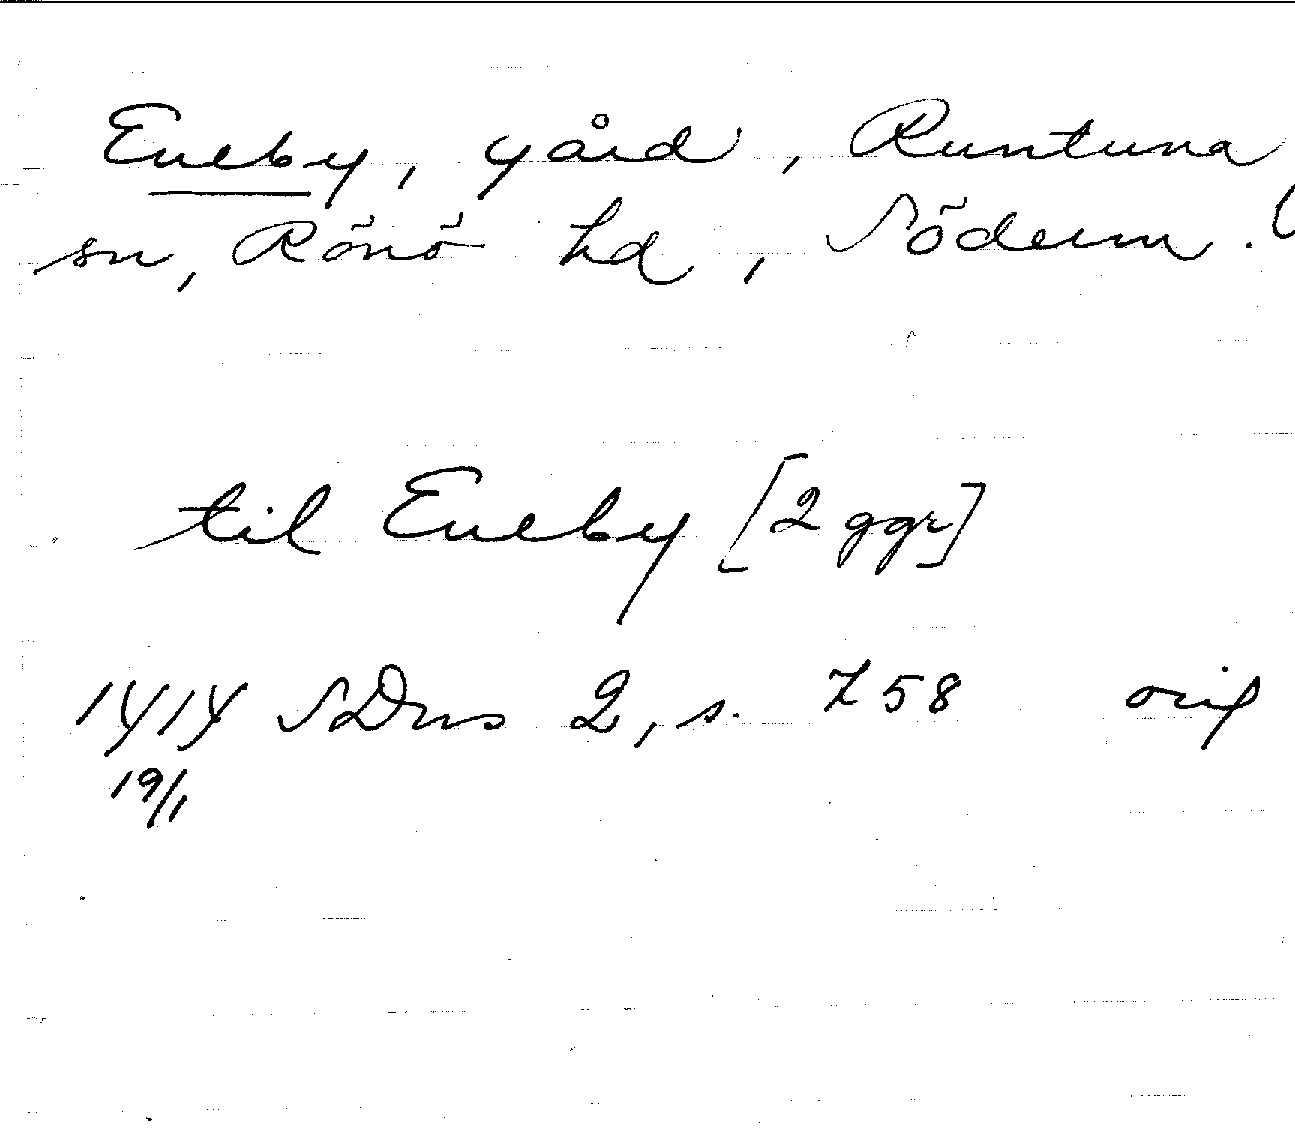 Eneby, gård, Runtuna
sn, Rönö hd, Söderm.
til Eneby [2 ggr]
1414 SDns 2, s. 758 orig
19/1